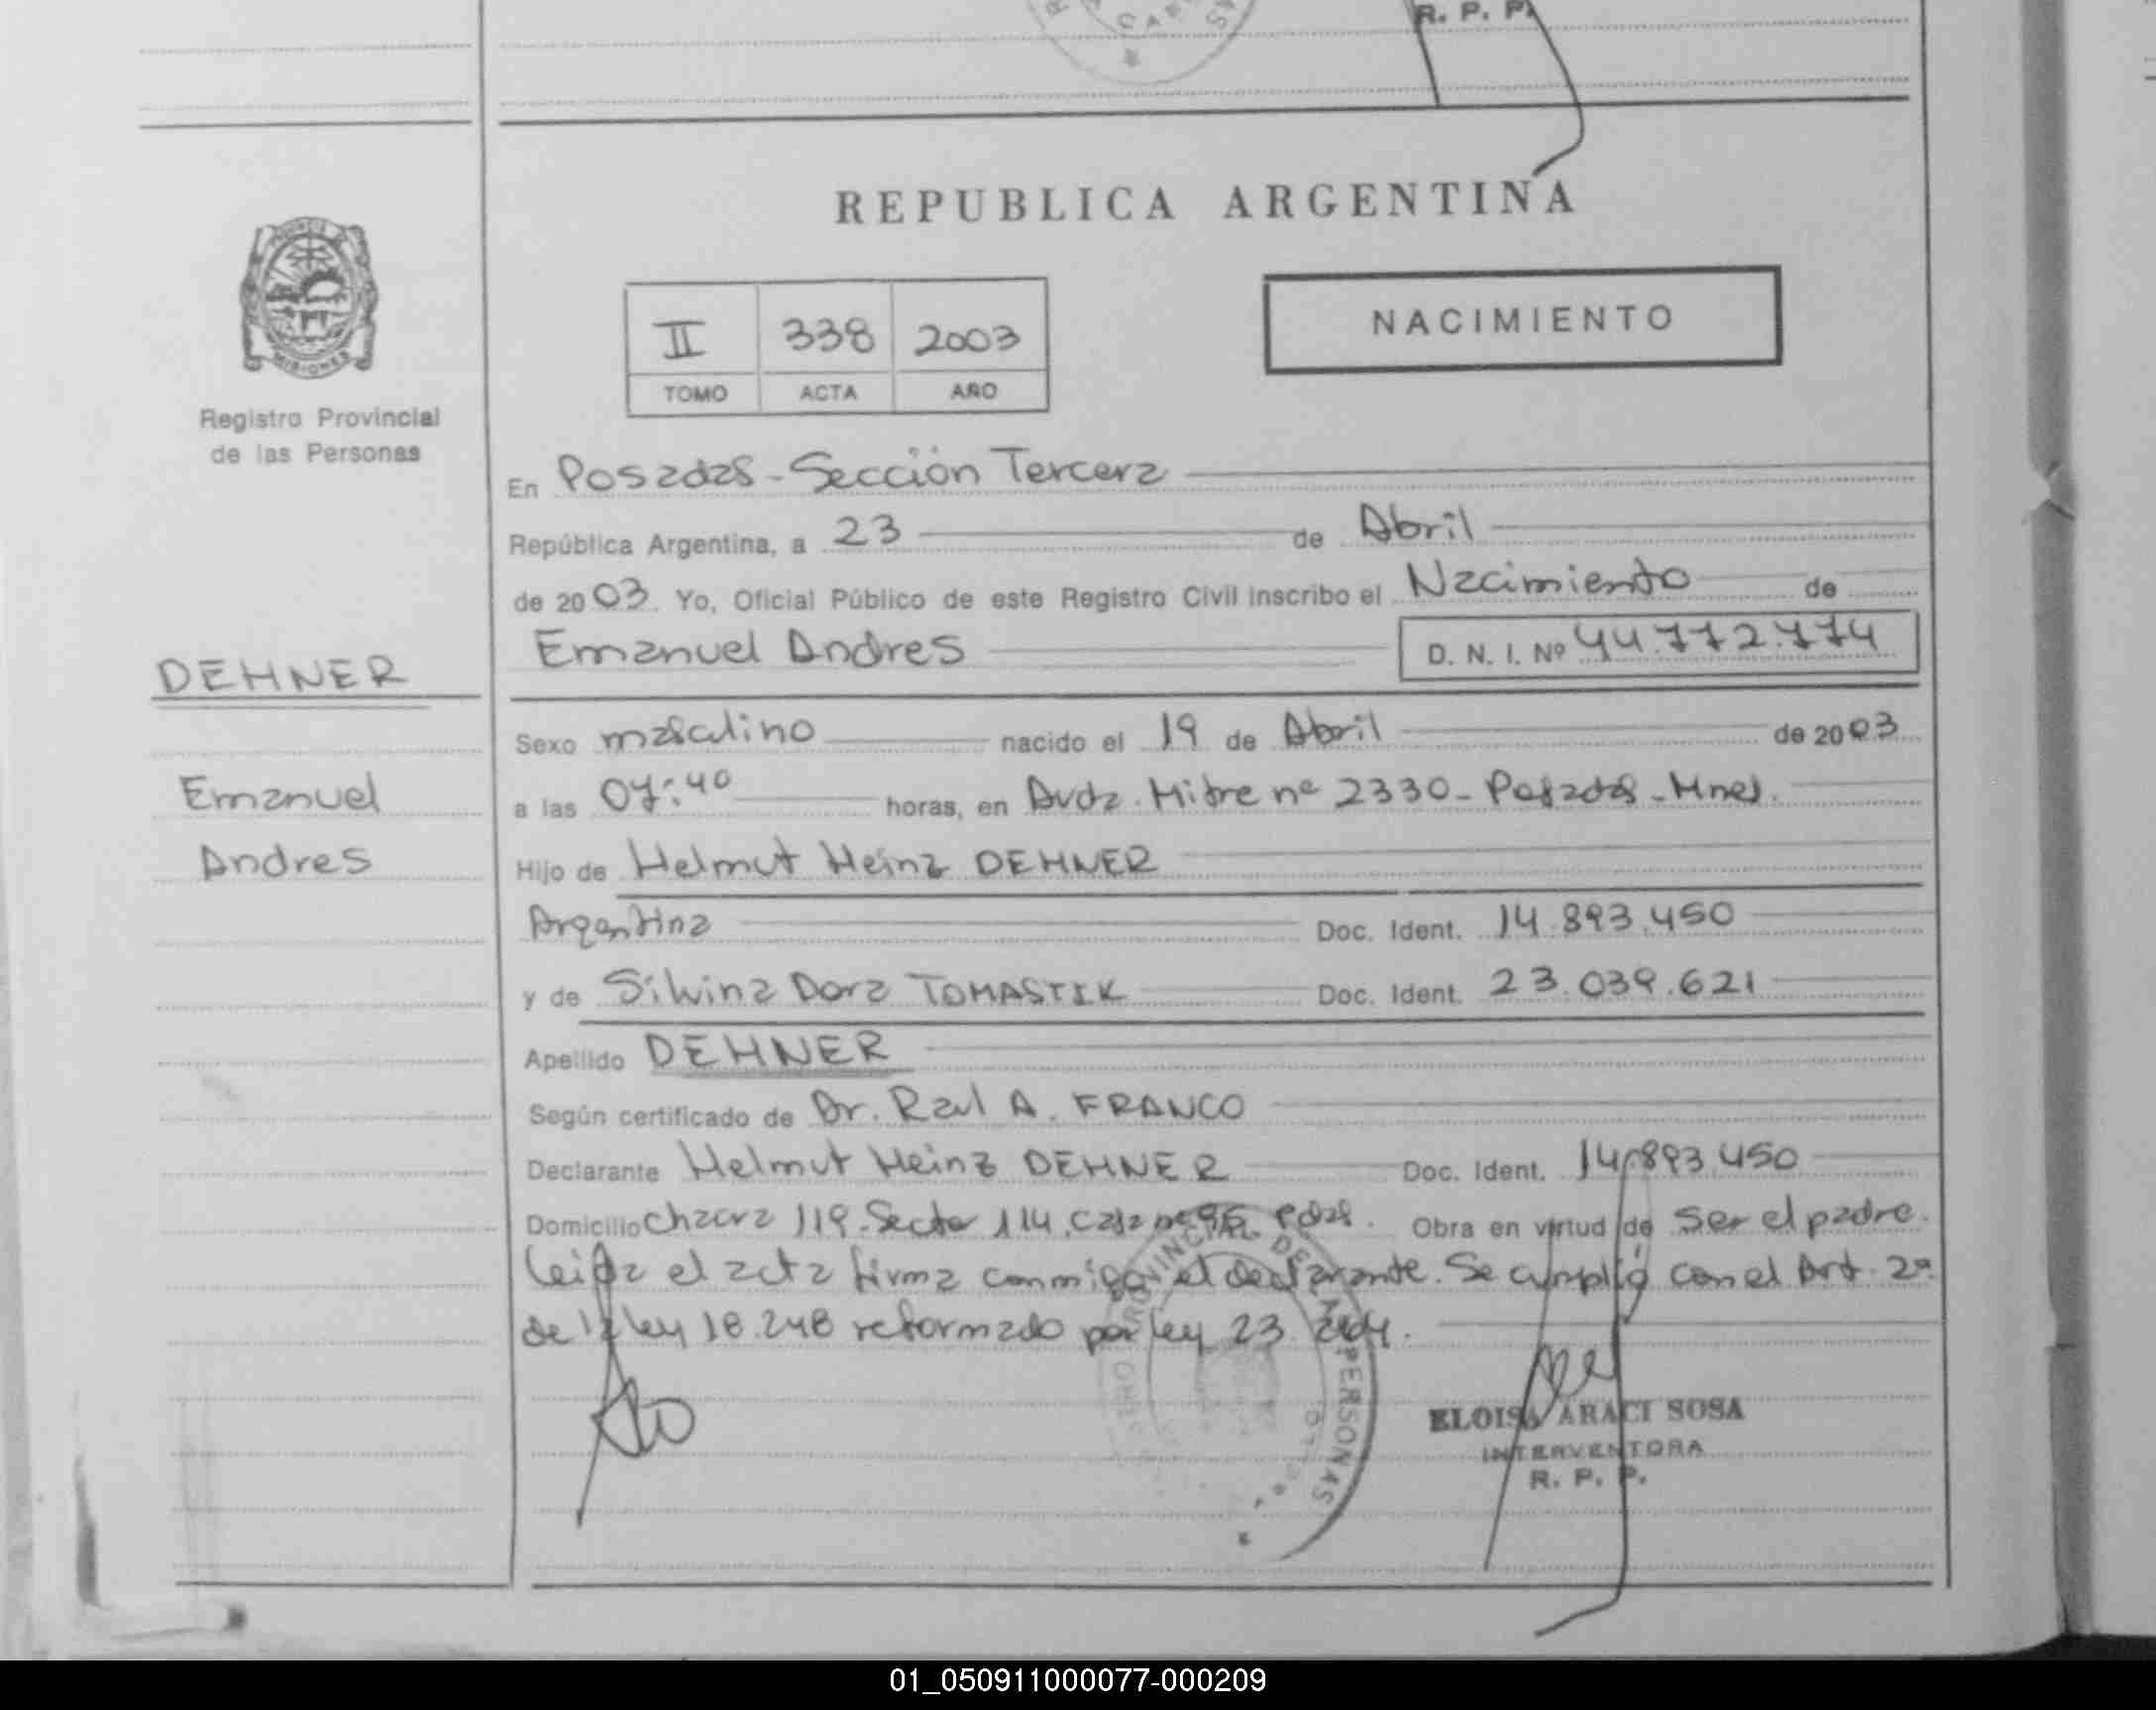 R. P. P.
REPUBLICA ARGENTINA
II 338 2003
TOMO ACTA AÑO
NACIMIENTO
MISIONES
Registro Provincial
de las Personas
En Posadas - Sección Tercera
República Argentina, a 23 de Abril
de 2003. Yo, Oficial Público de este Registro Civil inscribo el Nacimiento de
Emanuel Andres D. N. I. Nº 44.772.774
DEHNER
Sexo masculino nacido el 19 de Abril de 2003
Emanuel
a las 07:40 horas, en Avda. Mitre nº 2330 - Posadas - Mnes.
Andres
Hijo de Helmut Heinz DEHNER
Argentina Doc. Ident. 14.893.450
y de Silvina Dora TOMASTIK Doc. Ident. 23.039.621
Apellido DEHNER
Según certificado de Dr. Raul A. FRANCO
Declarante Helmut Heinz DEHNER Doc. Ident. 14.893.450
Domicilio Chacra 119. Sector 114. Casa nº Pdas. Obra en virtud de ser el padre.
Leida el acta firma conmigo el declarante. Se cumplió con el Art. 2º
de la ley 18.248 reformado por ley 23.264.
REGISTRO PROVINCIAL DE LAS PERSONAS
ELOISA ARACI SOSA
INTERVENTORA
R. P. P.
01_050911000077-000209